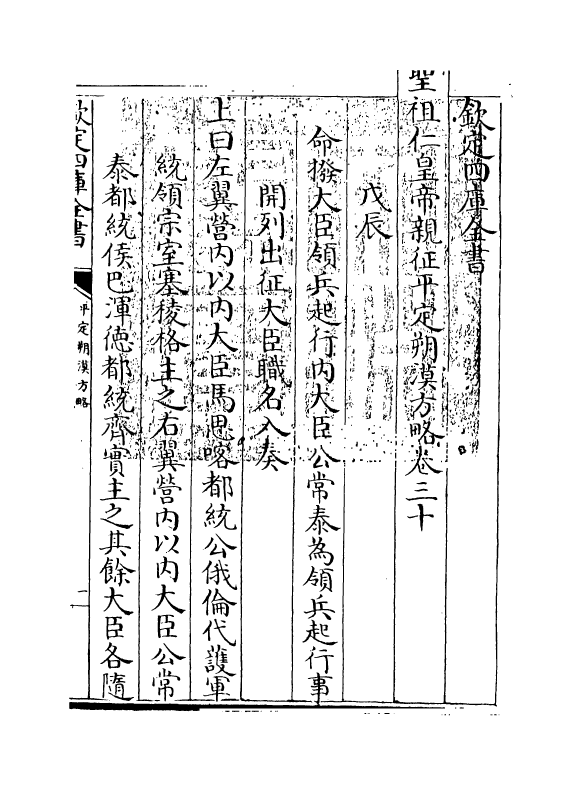 欽定四庫全書
聖祖仁皇帝親征平定朔漠方略卷三十
戊辰
命撥大臣領兵起行内大臣公常泰為領兵起行事
開列出征大臣職名入奏
上曰左翼營内以内大臣馬思喀都統公俄倫代䕶軍
統領宗室塞稜格主之右翼營内以内大臣公常
泰都統侯巴渾德都統齊實主之其餘大臣各隨
欽定四庫全書
平定朔漠方略